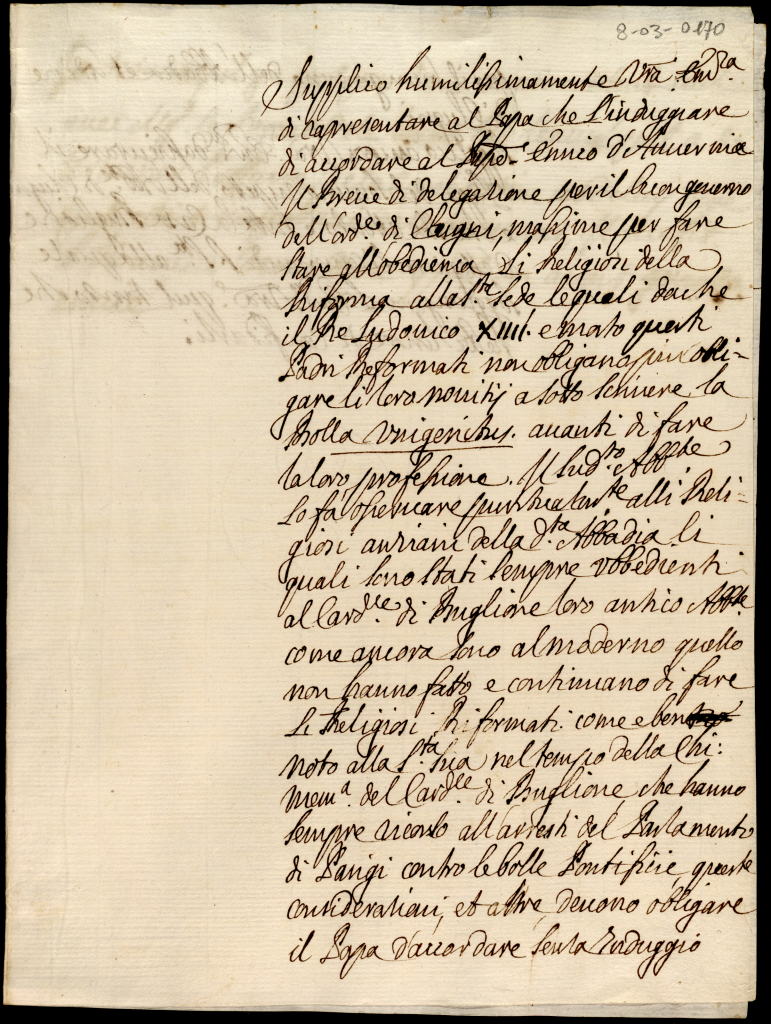 8-03-0170
Supplico humilissimamente Vr̃a Em.ra
di rapresentare al Papa che l'induggiare
di accordare al Enrico d'Auvernia
Il Breve di delegatione per il buon governo
dell'ord.e di Clugni, massime per fare
stare all'obedienza li Religiosi della
Riforma alla S.ta Sede le quali da che
il Re Ludovico XIIII. e morto questi
Padri Reformati non obligano piu obli-
gare li loro novitij a sotto scrivere la
Bolla Unigenitus. avanti di fare
la loro professione. Il sud.to Abb.te
lo fa osservare alli Reli-
giosi anziani della d.ta Abbadia li
quali sono stati sempre ubbedienti
al Card.le di Buglione loro antico Abb.te
come ancora sono al moderno quello
non hanno fatto e continuano di fare
li Religiosi Riformati come e ben
noto alla S.ta Sua nel tempo della Chi:
Mem.a del Card.le di Buglione, che hanno
sempre ricorso all'arresti del Parlamento
di Parigi contro le bolle Pontificie, queste
considerationi, et altre, devono obligare
il Papa d'accordare senza Induggio